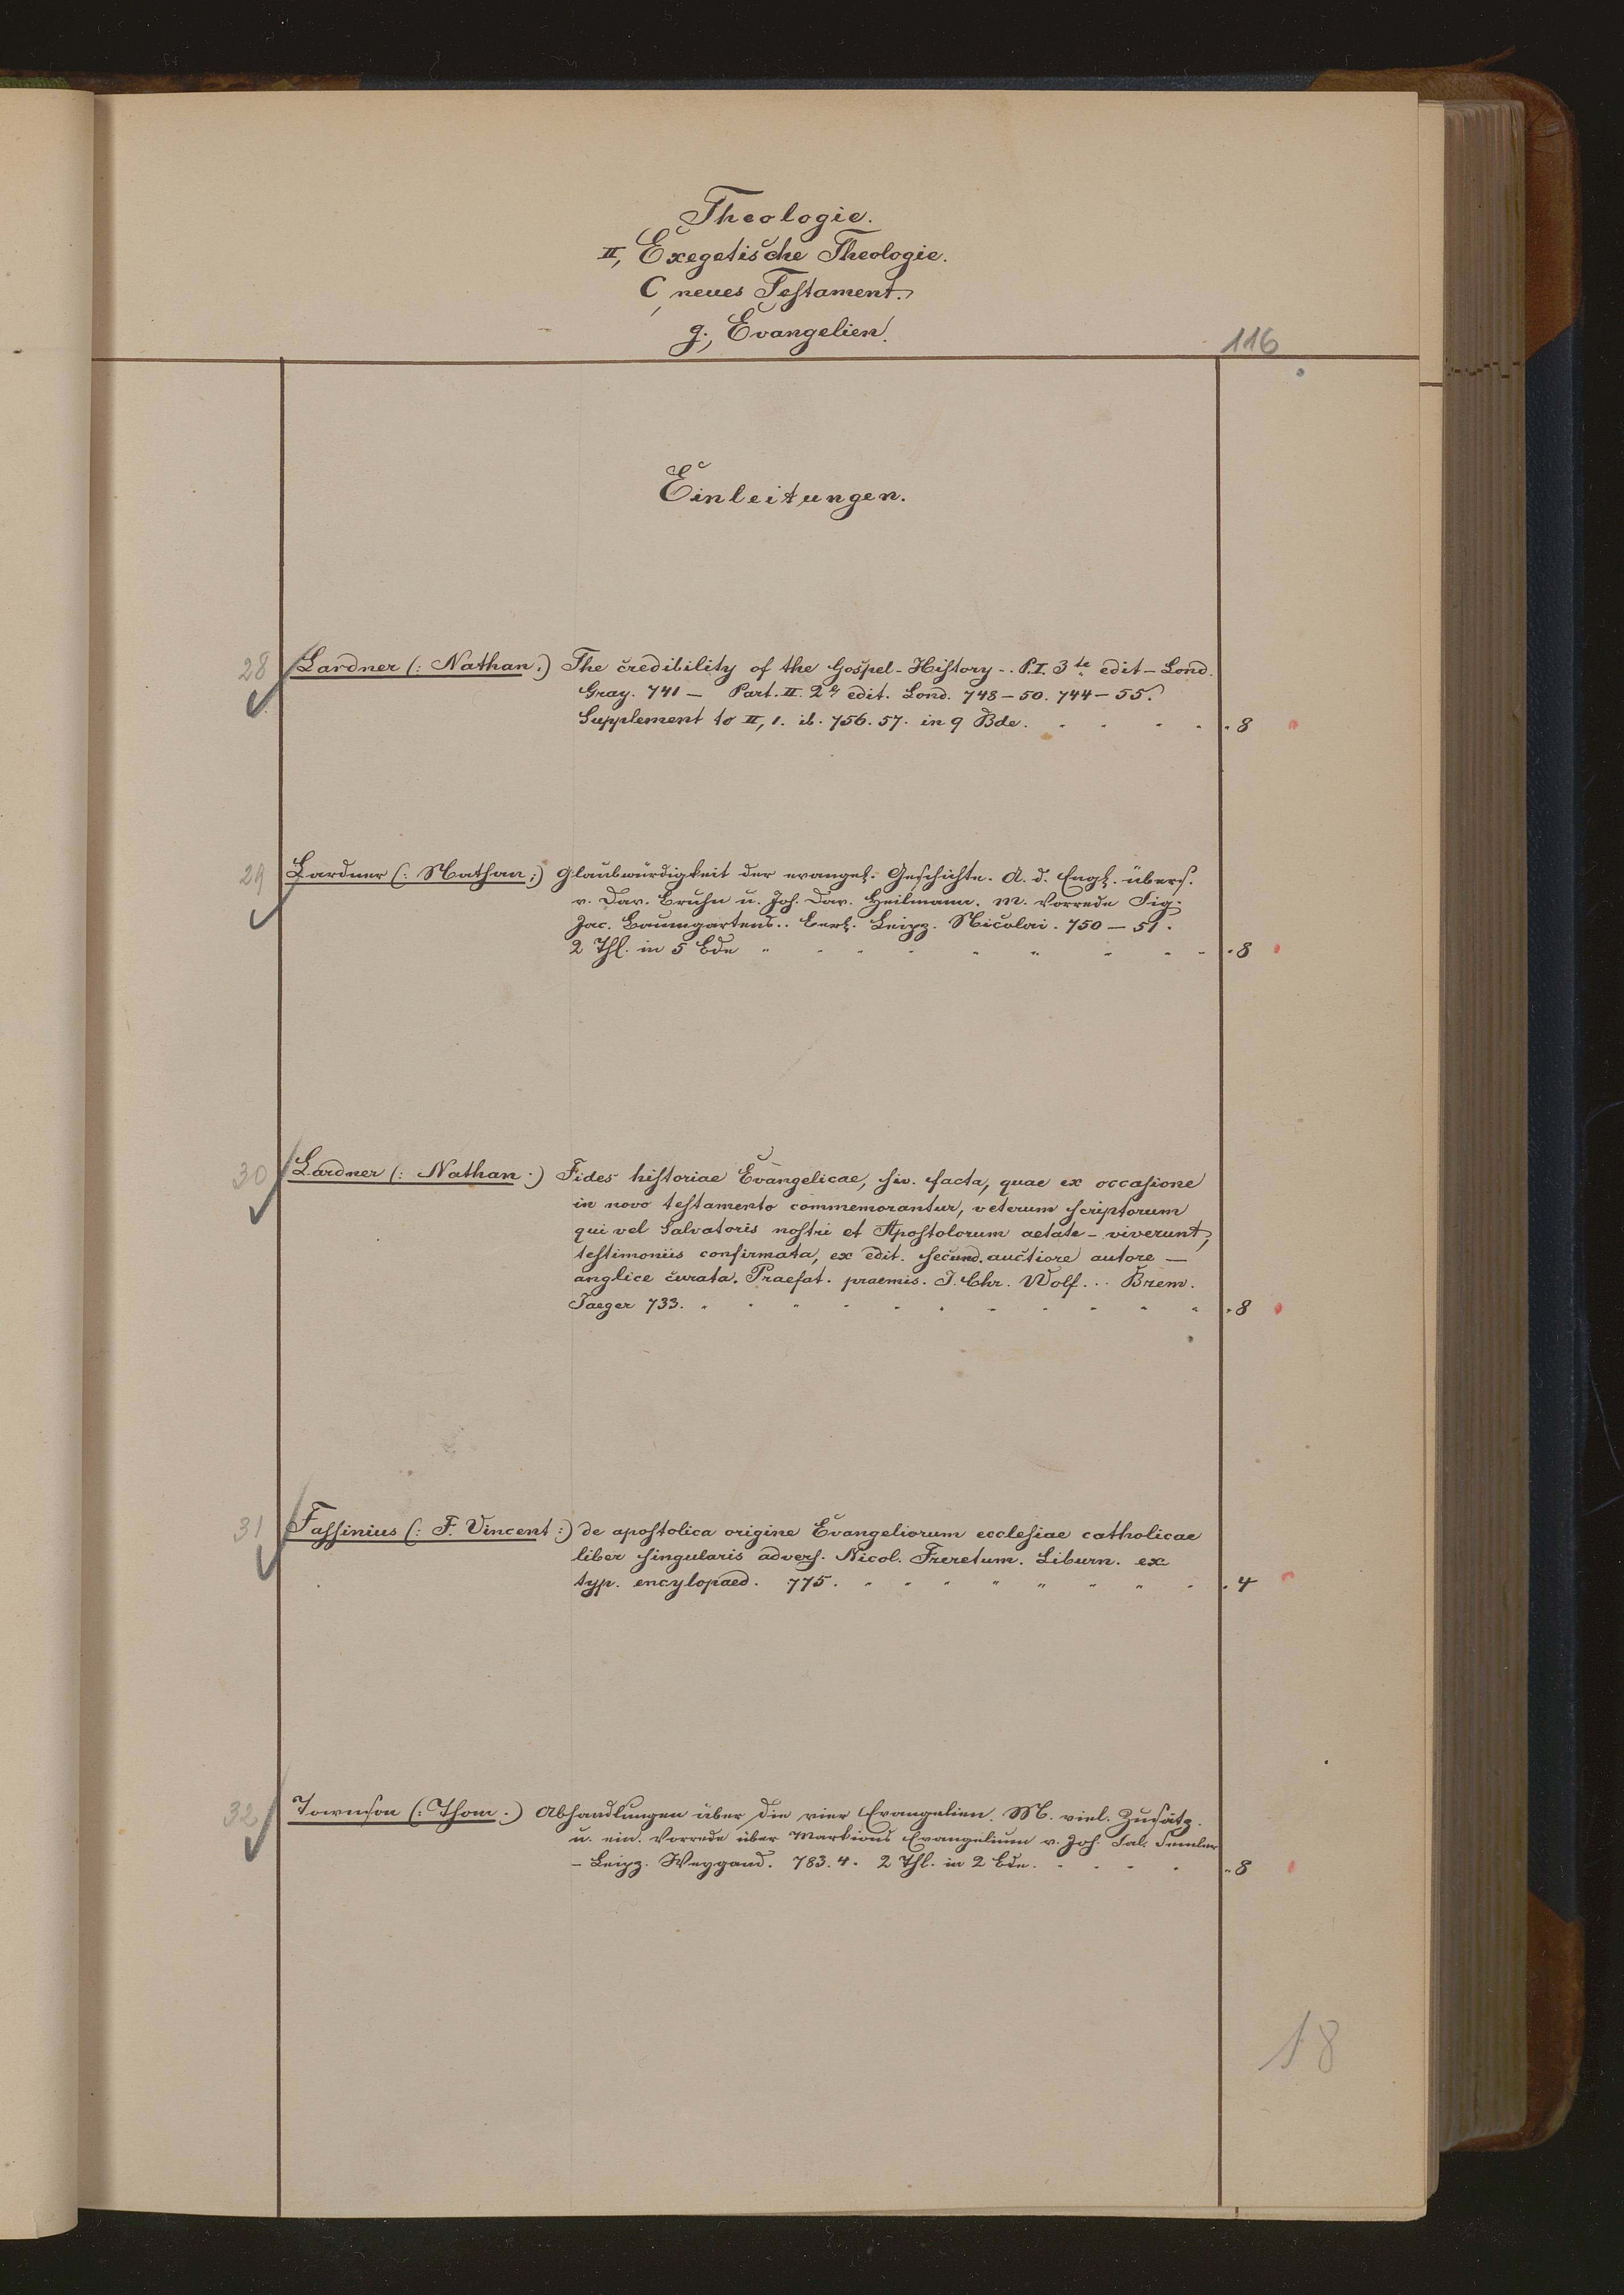 Theologie.
II, Exegetische Theologie.
C, neues Testament.
g., Evangelien.
116
Einleitungen.
28 Lardner (: Nathan :) The credibility of the Gospel-History .. P.I. 3te edit – Lond.
Gray. 741 – Part. II. 2d edit. Lond. 748–50. 744–55.
Supplement to II, 1. ib. 756. 57. in 9 Bde. 8
29 Lardner (: Nathan :) Glaubwürdigkeit der evangel. Geschichte. A. d. Engl. übers.
v. Dav. Bruhn u. Joh. Dav. Heilmann. M. Vorrede Sig.
Jac. Baumgartens.. Berl. Leipz. Nicolai. 750–51.
2 Thl. in 5 Bde 8
30 Lardner (: Nathan :) Fides historiae Evangelicae, siv. facta, quae ex occasione
in novo testamento commemorantur, veterum scriptorum
qui vel Salvatoris nostri et Apostolorum aetate – viverunt,
testimoniis confirmata, ex edit. secund. auctiore autore –
anglice curata. Praefat. praemis. J. Chr. Wolf... Brem.
Jaeger 733. 8
31 Fassinius (: F. Vincent :) de apostolica origine Evangeliorum ecclesiae catholicae
liber singularis advers. Nicol. Freretum. Liburn. ex
typ. encylopaed. 775. 4
32 Townson (: Thom :) Abhandlungen über die vier Evangelien. M. viel. Zusätz.
u. ein. Vorrede über Markions Evangelium v. Joh. Sal. Semler
– Leipz. Weygand. 783. 4. 2 Thl. in 2 Bde. 8
18